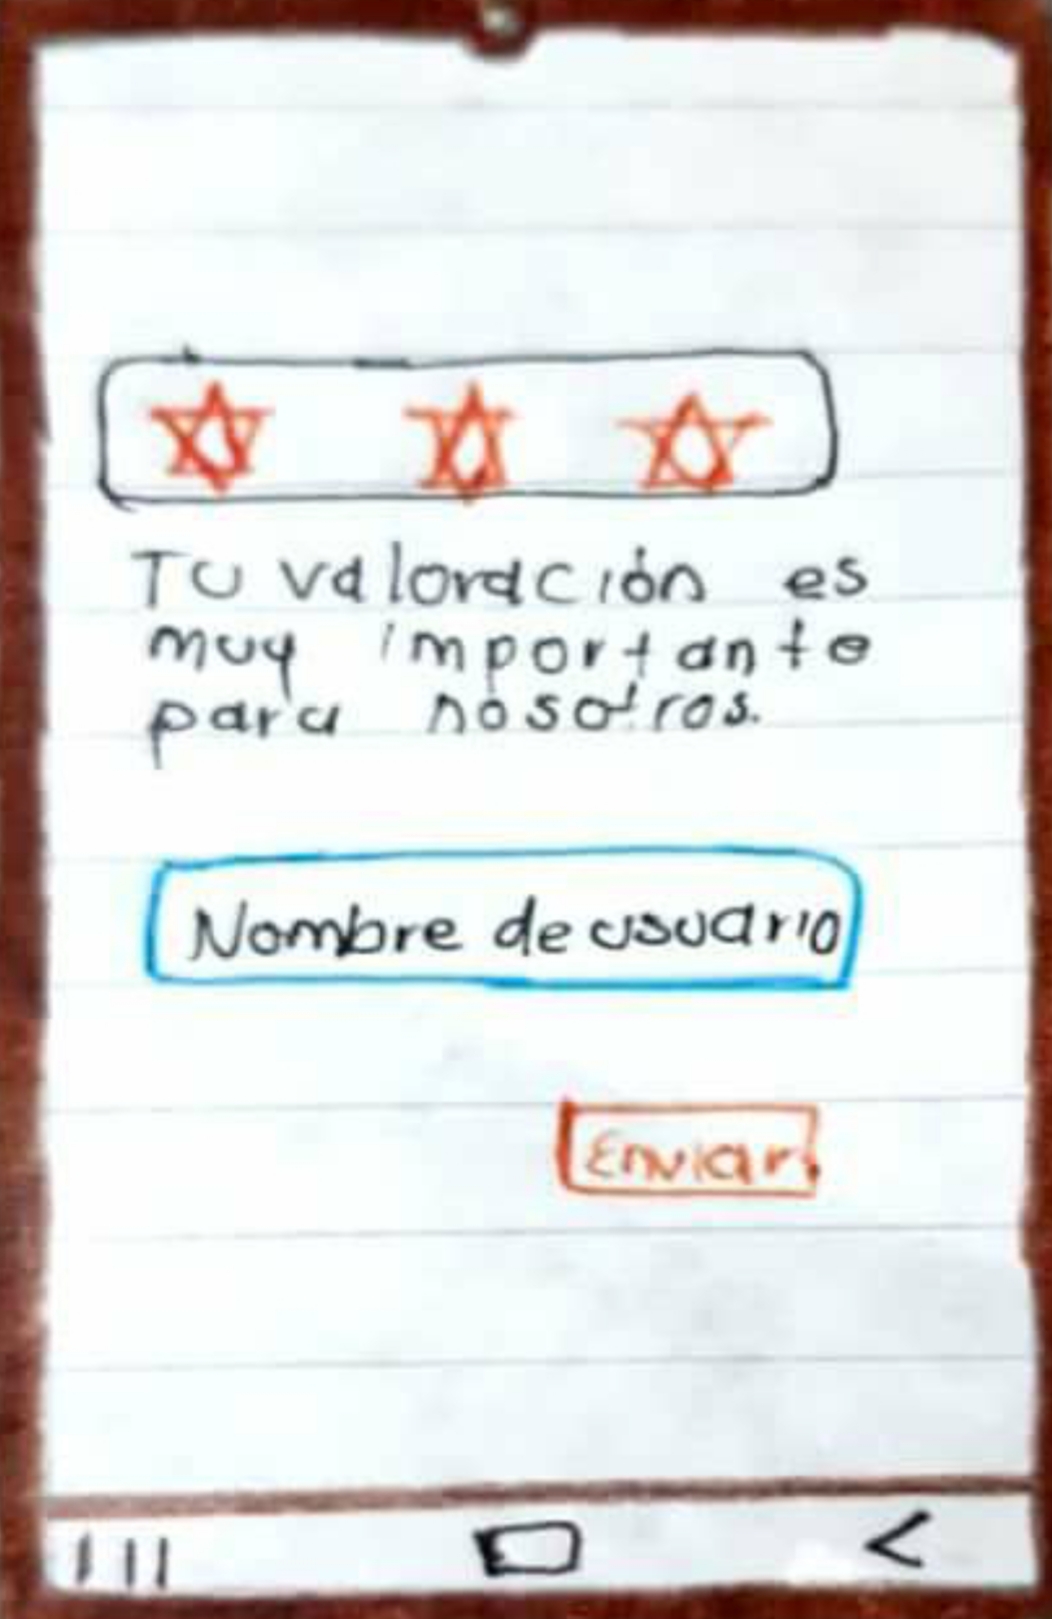 Tu valoración es
muy importante
para nosotros.
Nombre de usuario
Enviar